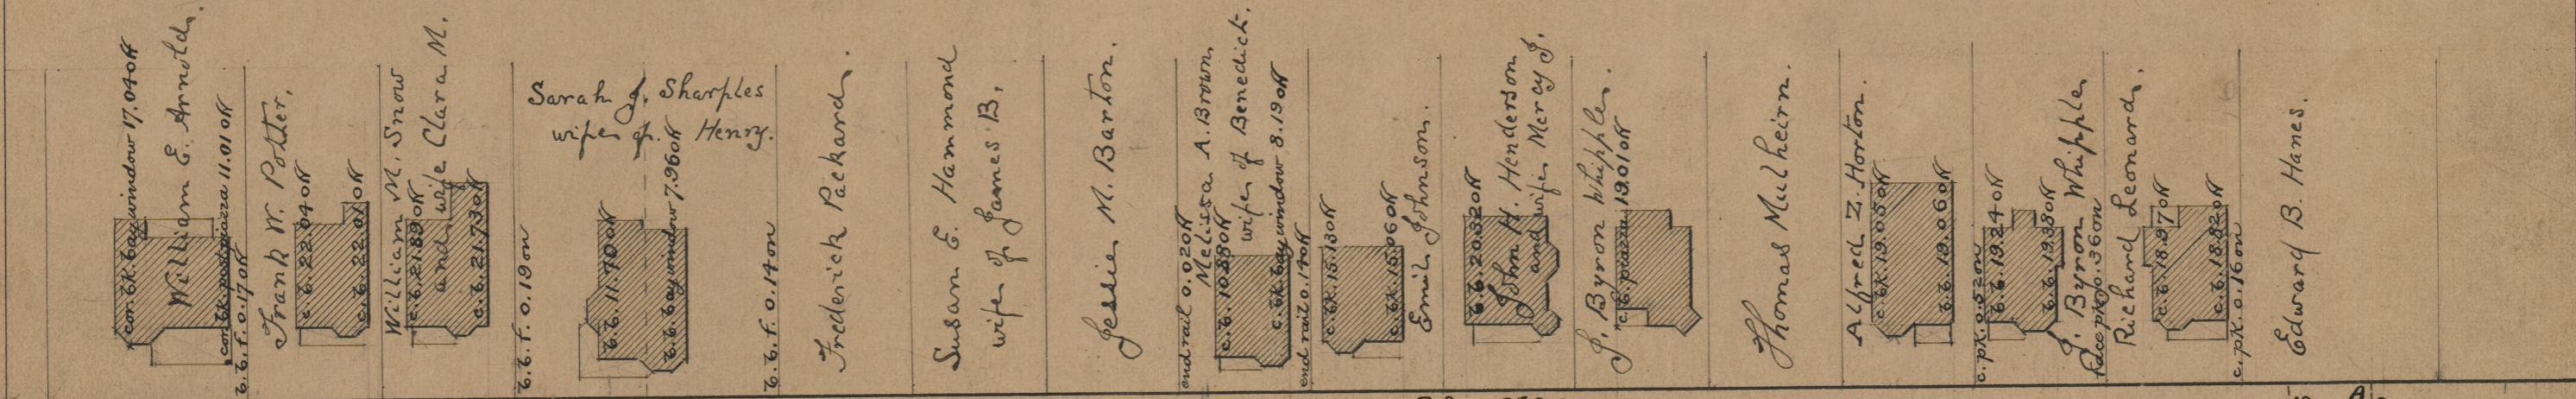 cor. bk. bay window 17.04 off
William E. Arnold.
cor. bk. post piazza 11.01 off
b. b. f. 0.17 off
Frank W. Potter.
c. b. 22.04 off
c. b. 22.01 off
William M. Snow
and wife Clara M.
c. b. 21.89 off
c. b. 21.73 off
b. b. f. 0.19 on
Sarah J. Sharples
wife of Henry.
b. b. 11.70 off
b. b. bay window 7.96 off
b. b. f. 0.14 on
Frederick Packard.
Susan E. Hammond
wife of James B.
Jessie M. Barton.
end rail 0.02 off
Melissa A. Brown
wife of Benedict.
c. b. 10.88 off
c. bk. bay window 8.19 off
end rail 0.14 off
c. bk. 15.13 off
c. bk. 15.06 off
Emil Johnson.
b. b. 20.32 off
John H. Henderson
and wife Mercy J.
J. Byron Whipple.
c. b. piazza 19.01 off
Thomas Mulheirn.
Alfred Z. Horton.
c. bk. 19.05 off
b. b. 19.06 off
c. pk. 0.52 on
b. b. 19.24 off
b. b. 19.38 off
J. Byron Whipple
face pk. 0.36 on
Richard Leonard.
c. b. 18.97 off
c. b. 18.82 off
c. pk. 0.16 on
Edward B. Hanes.